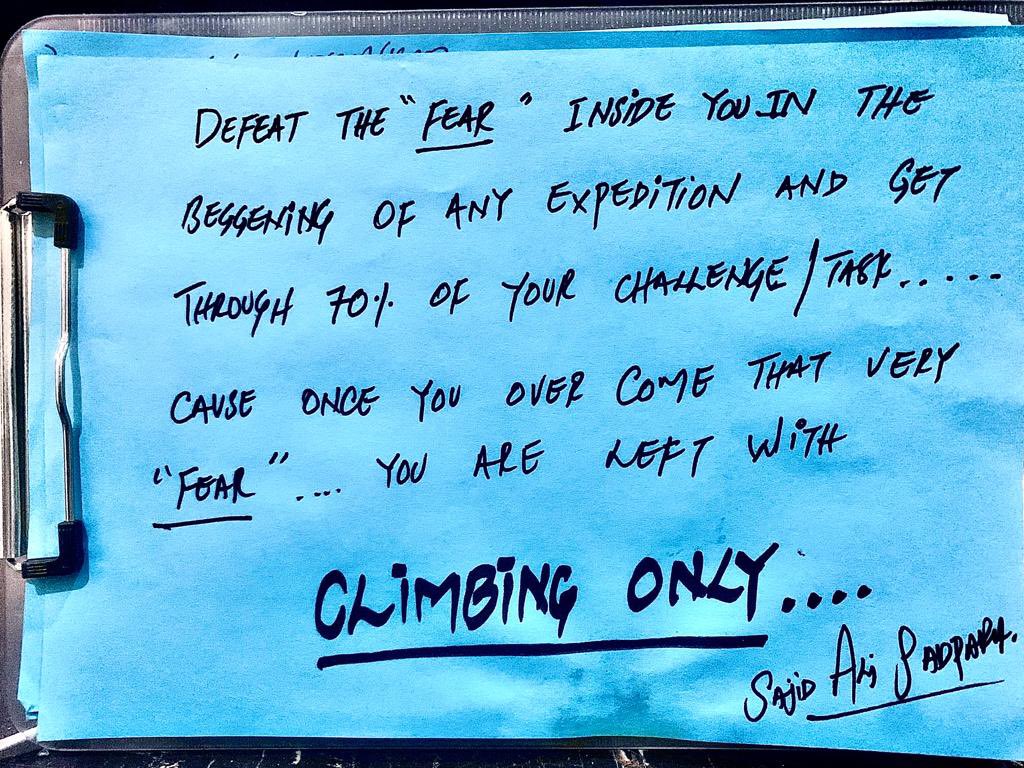 DEFEAT THE "FEAR" INSIDE YOU IN THE
BEGGENING OF ANY EXPEDITION AND GET
THROUGH 70% OF YOUR CHALLENGE/TASK.....
CAUSE ONCE YOU OVER COME THAT VERY
"FEAR".... YOU ARE LEFT WITH
CLIMBING ONLY....
SAJID ALI SADPARA.